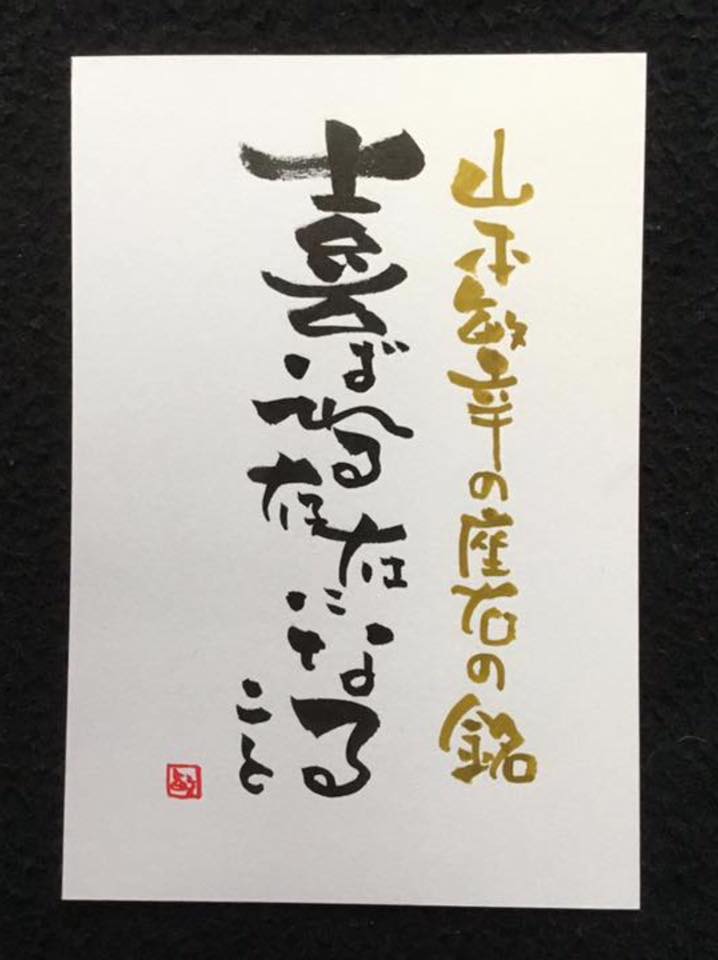 山本敏幸の座右の銘
喜ばれる存在になる
こと